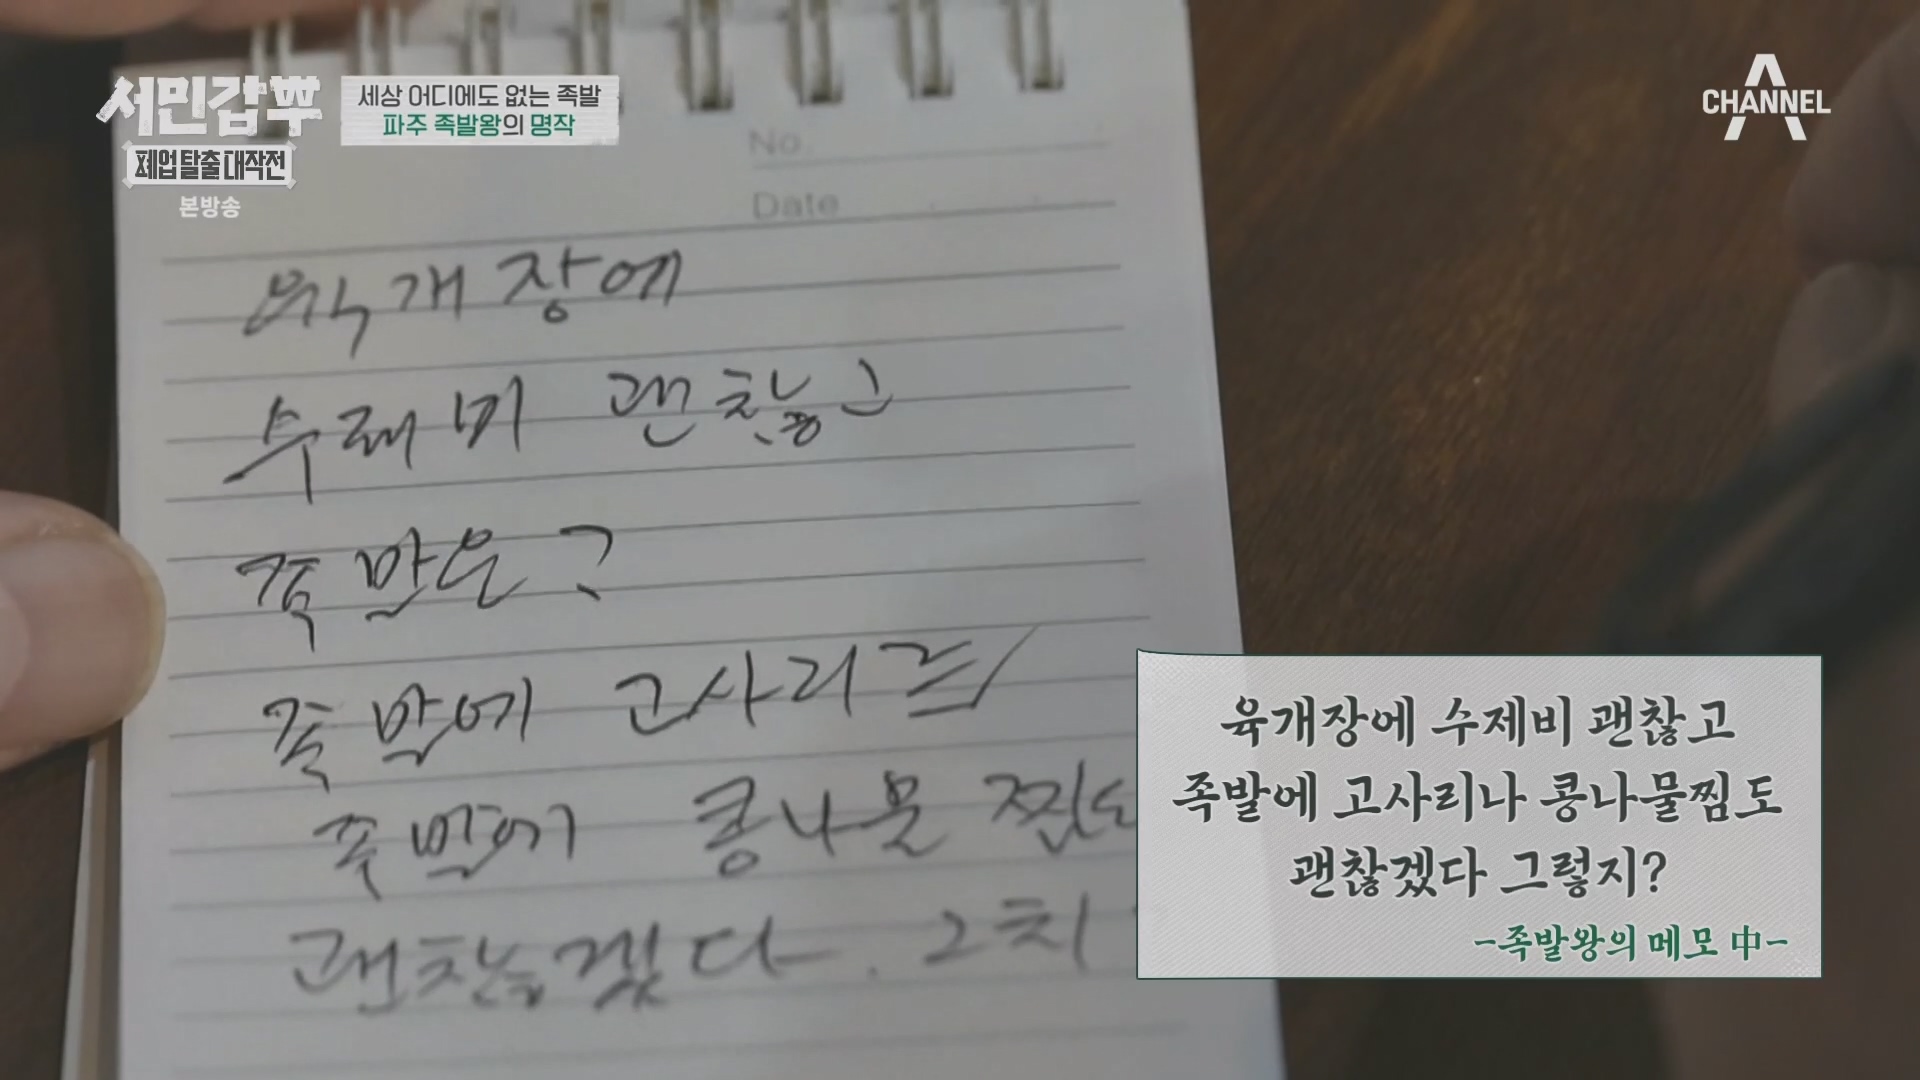 서민갑부
폐업 탈출 대작전
본방송
세상 어디에도 없는 족발
파주 족발왕의 명작
CHANNEL A
No.
Date
육개장에
수래비 괜찮고
족발은?
족발에 고사리
족발에 콩나물 찜도
괜찮겠다. 그치
육개장에 수제비 괜찮고
족발에 고사리나 콩나물찜도
괜찮겠다 그렇지?
-족발왕의 메모 中-